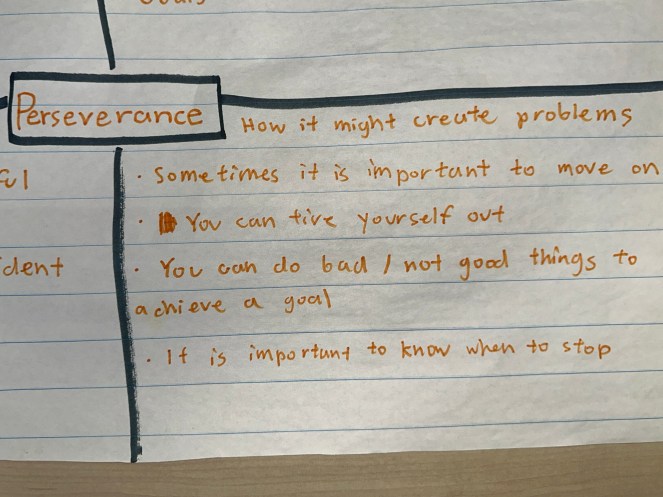 Perseverance
How it might create problems
· Sometimes it is important to move on
· You can tire yourself out
· You can do bad / not good things to
achieve a goal
· It is important to know when to stop